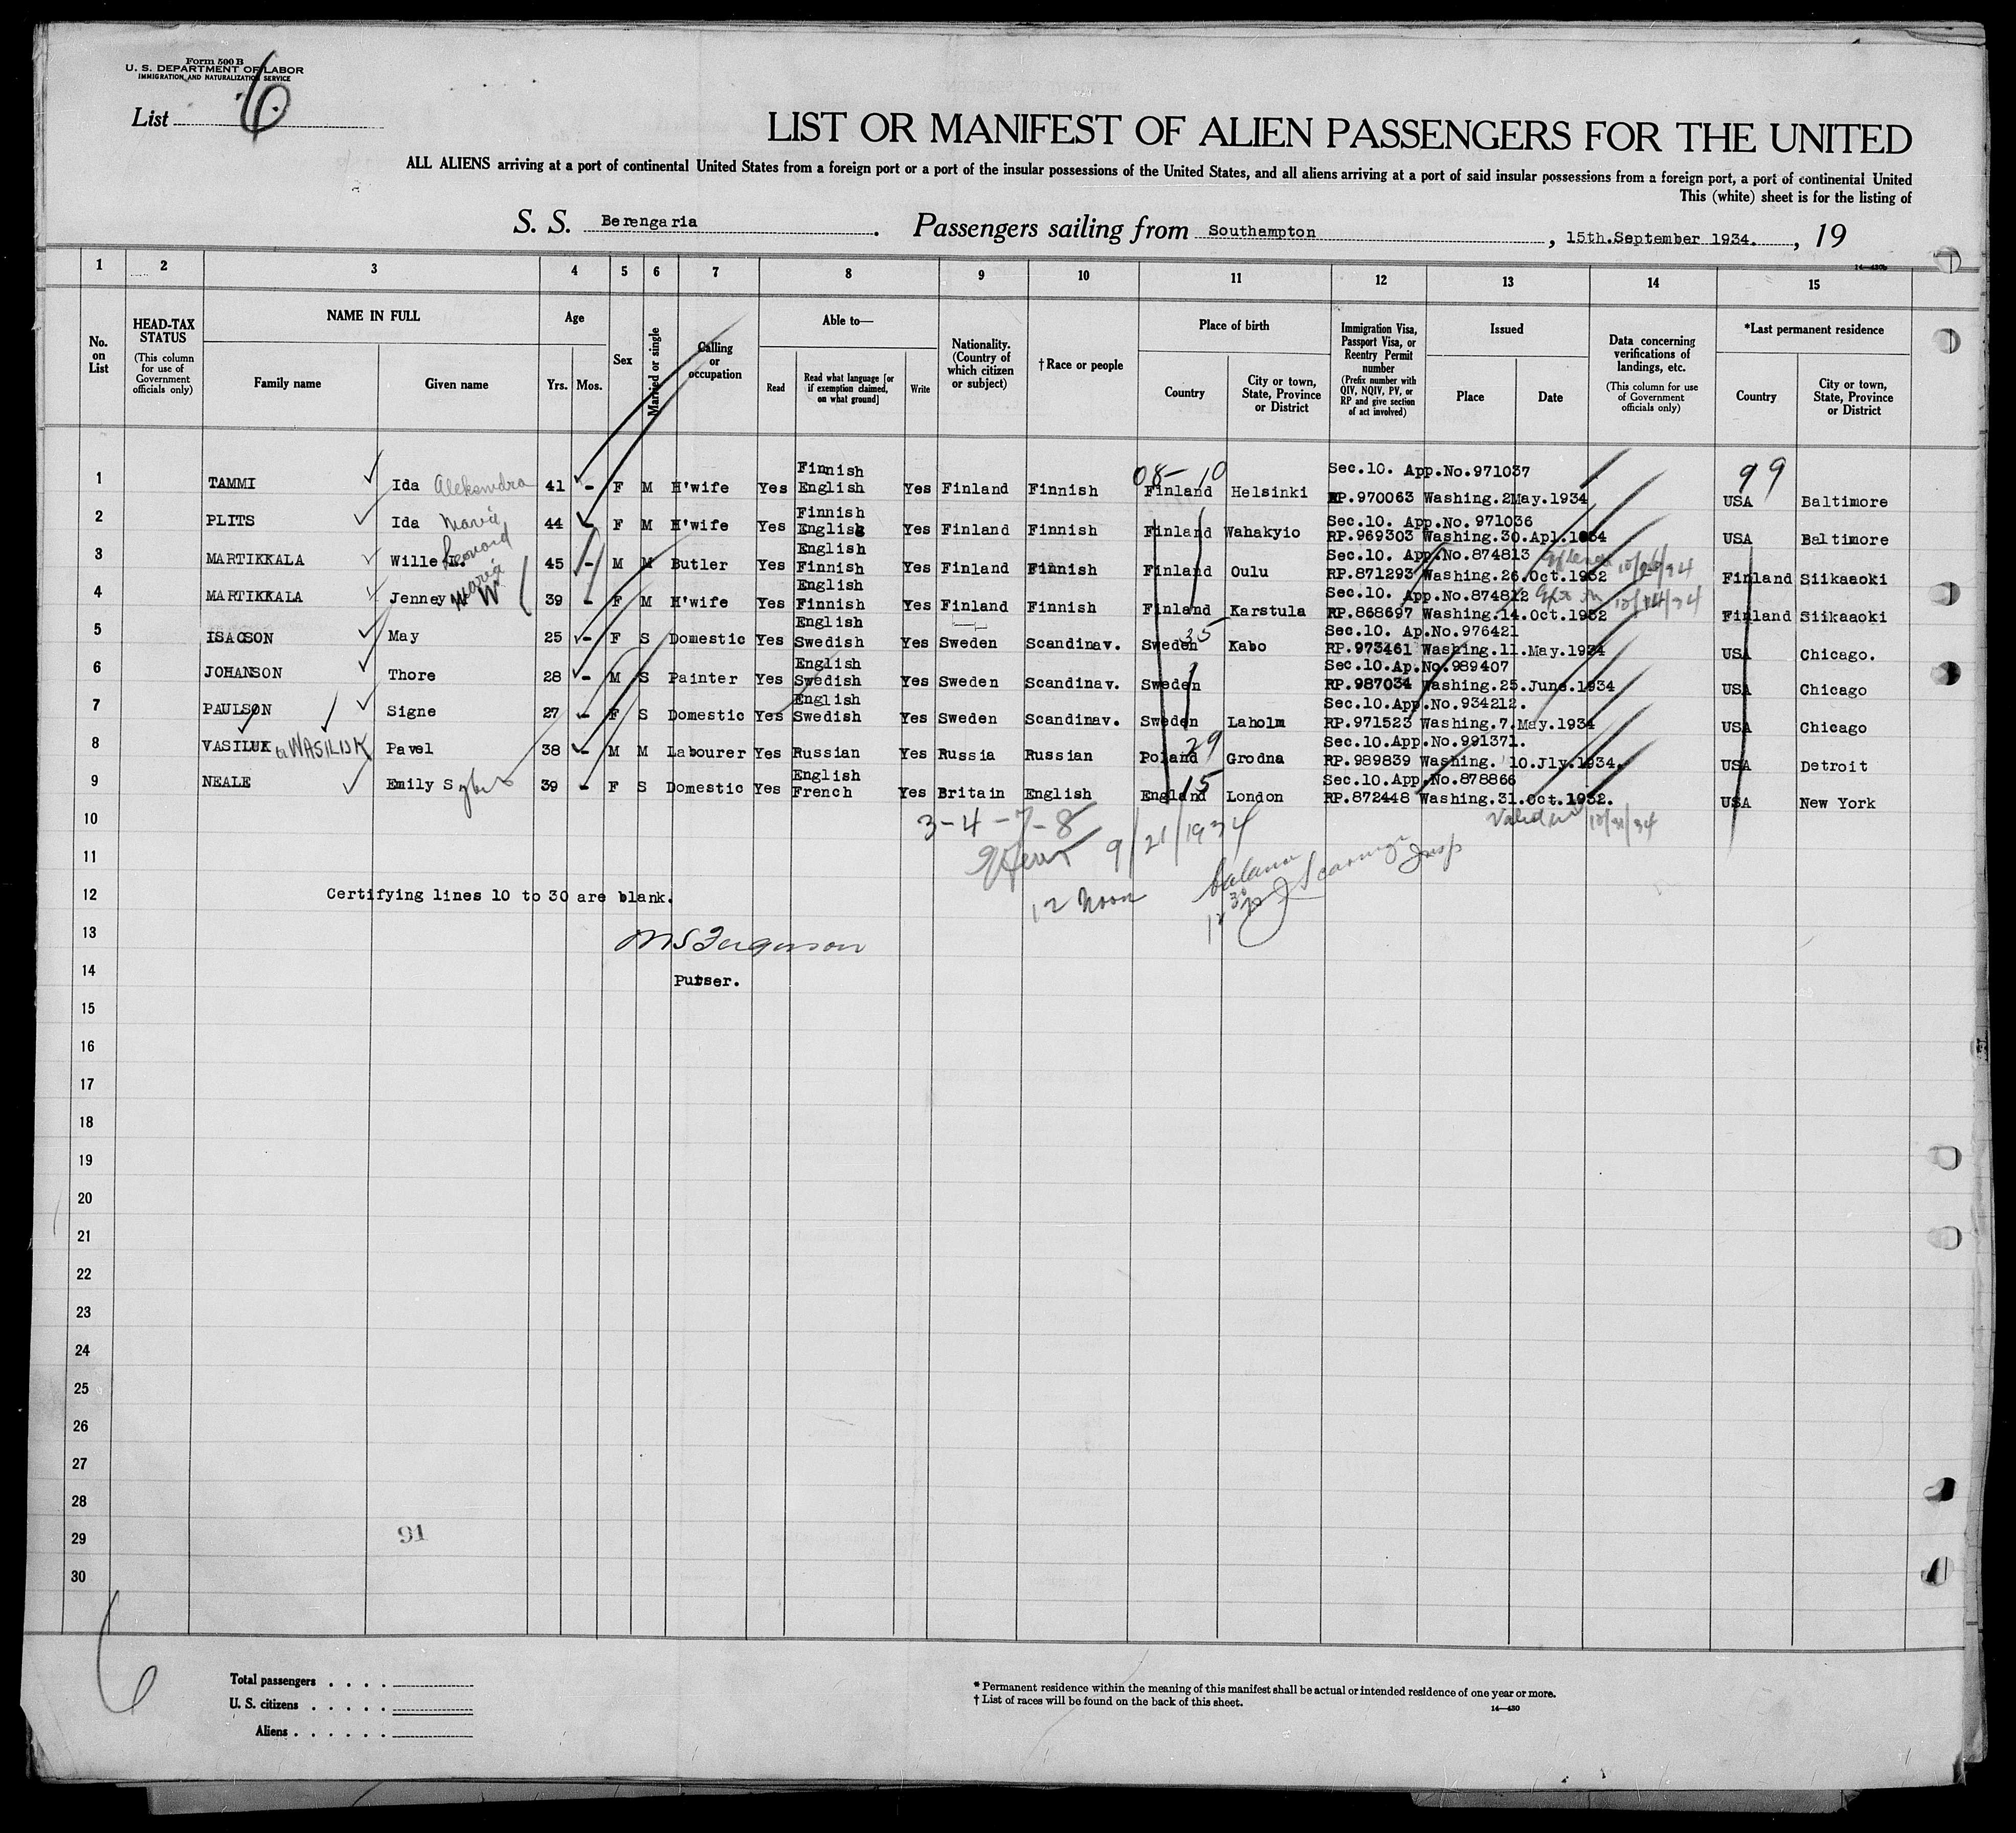 Form 500 B
U. S. DEPARTMENT OF LABOR
IMMIGRATION AND NATURALIZATION SERVICE
List 6
LIST OR MANIFEST OF ALIEN PASSENGERS FOR THE UNITED
ALL ALIENS arriving at a port of continental United States from a foreign port or a port of the insular possessions of the United States, and all aliens arriving at a port of said insular possessions from a foreign port, a port of continental United
This (white) sheet is for the listing of
S. S. Berengaria. Passengers sailing from Southampton, 15th.September 1934., 19
14—430b
1 2 3 4 5 6 7 8 9 10 11 12 13 14 15
No. on List
HEAD-TAX STATUS
(This column for use of Government officials only)
NAME IN FULL
Family name
Given name
Age
Yrs. Mos.
Sex
Married or single
Calling or occupation
Able to—
Read
Read what language [or if exemption claimed, on what ground]
Write
Nationality. (Country of which citizen or subject)
† Race or people
Place of birth
Country
City or town, State, Province or District
Immigration Visa, Passport Visa, or Reentry Permit number
(Prefix number with QIV, NQIV, PV, or RP and give section of act involved)
Issued
Place
Date
Data concerning verifications of landings, etc.
(This column for use of Government officials only)
*Last permanent residence
Country
City or town, State, Province or District
08- 10 99
1 TAMMI Ida Aleksandra 41 - F M H'wife Yes Finnish English Yes Finland Finnish Finland Helsinki Sec.10. App.No.971037 RP.970063 Washing.2May.1934 USA Baltimore
2 PLITS Ida Maria 44 - F M H'wife Yes Finnish English Yes Finland Finnish Finland Wahakyio Sec.10. App.No. 971036 RP.969303 Washing.30.Apl.1934 USA Baltimore
3 MARTIKKALA Wille L. Leonard 45 - M M Butler Yes English Finnish Yes Finland Finnish Finland Oulu Sec.10. App.No.874813 RP.871293 Washing.26.Oct.1932 10/26/34 Finland Siikaaoki
4 MARTIKKALA Jenney W Maria 39 - F M H'wife Yes English Finnish Yes Finland Finnish Finland Karstula Sec.10. App.No.874812 RP.868697 Washing.14.Oct.1932 10/14/34 Finland Siikaaoki
5 ISACSON May 25 - F S Domestic Yes English Swedish Yes Sweden Scandinav. Sweden 35 Kabo Sec.10. Ap.No.976421 RP.973461 Washing.11.May.1934 USA Chicago.
6 JOHANSON Thore 28 - M S Painter Yes English Swedish Yes Sweden Scandinav. Sweden Sec.10.Ap.No.989407 RP.987034 Washing.25.June.1934 USA Chicago
7 PAULSON Signe 27 - F S Domestic Yes English Swedish Yes Sweden Scandinav. Sweden Laholm Sec.10.App.No.934212. RP.971523 Washing.7.May.1934 USA Chicago
8 VASILUK or WASILIJK Pavel 38 - M M Labourer Yes Russian Yes Russia Russian Poland 29 Grodna Sec.10.App.No.991371. RP.989839 Washing. 10.Jly.1934. USA Detroit
9 NEALE Emily S 39 - F S Domestic Yes English French Yes Britain English England 15 London Sec.10.App.No.878866 RP.872448 Washing.31.Oct.1932. USA New York
10 3-4-7-8 Valid 10/31/34
9/21/1934
11
12 Certifying lines 10 to 30 are blank. 12 noon
13 Ferguson
14 Purser.
15
16
17
18
19
20
21
22
23
24
25
26
27
28
29 91
30
6
Total passengers
U. S. citizens
Aliens
* Permanent residence within the meaning of this manifest shall be actual or intended residence of one year or more.
† List of races will be found on the back of this sheet.
14—430